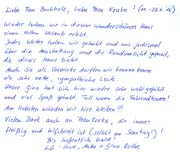 Liebe Frau Buchholz, liebe Frau Kraske! (11.-25.6.16)
Wieder haben wir in diesem wunderschönen Haus
einen tollen Urlaub erlebt.
Jedes Wetter haben wir gehabt und uns jedesmal
über die Ausstattung und die Rundumsicht gefreut, die
dieses Haus bietet.
Auch Sie als Vermieter durften wir kennen lernen
als sehr nette, sympathische Leute.
Unser Gino hat sich hier wieder sehr wohl gefühlt
und viel Spaß gehabt. Toll waren die Fahrradtouren!
Am liebsten würden wir hier bleiben!!!
Vielen Dank auch an Frau Kraske, die immer
fleißig und hilfsbereit ist (selbst am Sonntag!)
Bis hoffentlich bald!
LG: Uwe, Anke + Gino